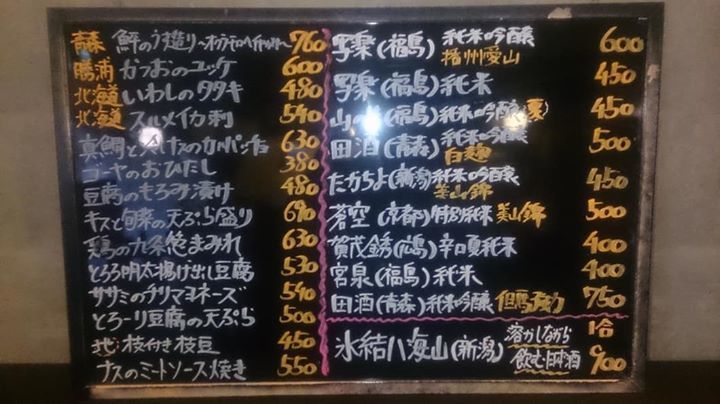 青森 鮃のう造り 760
勝浦 かつおのユッケ 600
北海道 いわしのタタキ 480
北海道 スルメイカ刺 540
真鯛と 630
ゴーヤのおひたし 380
豆腐のもろみ漬け 480
キスと旬菜の天ぷら盛り 690
鶏の九条葱まみれ 630
とろろ明太揚げ出し豆腐 530
ササミのチリマヨネーズ 540
とろーり豆腐の天ぷら 500
地枝付き枝豆 450
ナスのミートソース焼き 550
写楽(福島)純米吟醸 播州愛山 600
写楽(福島)純米 450
山の(福島)純米吟醸(夏) 450
田酒(青森)純米吟醸 白麹 500
たかちよ(新潟)純米吟醸 美山錦 450
蒼空(京都)特別純米 美山錦 500
賀茂錦(広島)辛口夏純米 400
宮泉(福島)純米 400
田酒(青森)純米吟醸 但馬強力 750
氷結八海山(新潟) 溶かしながら飲む日本酒 1合 900